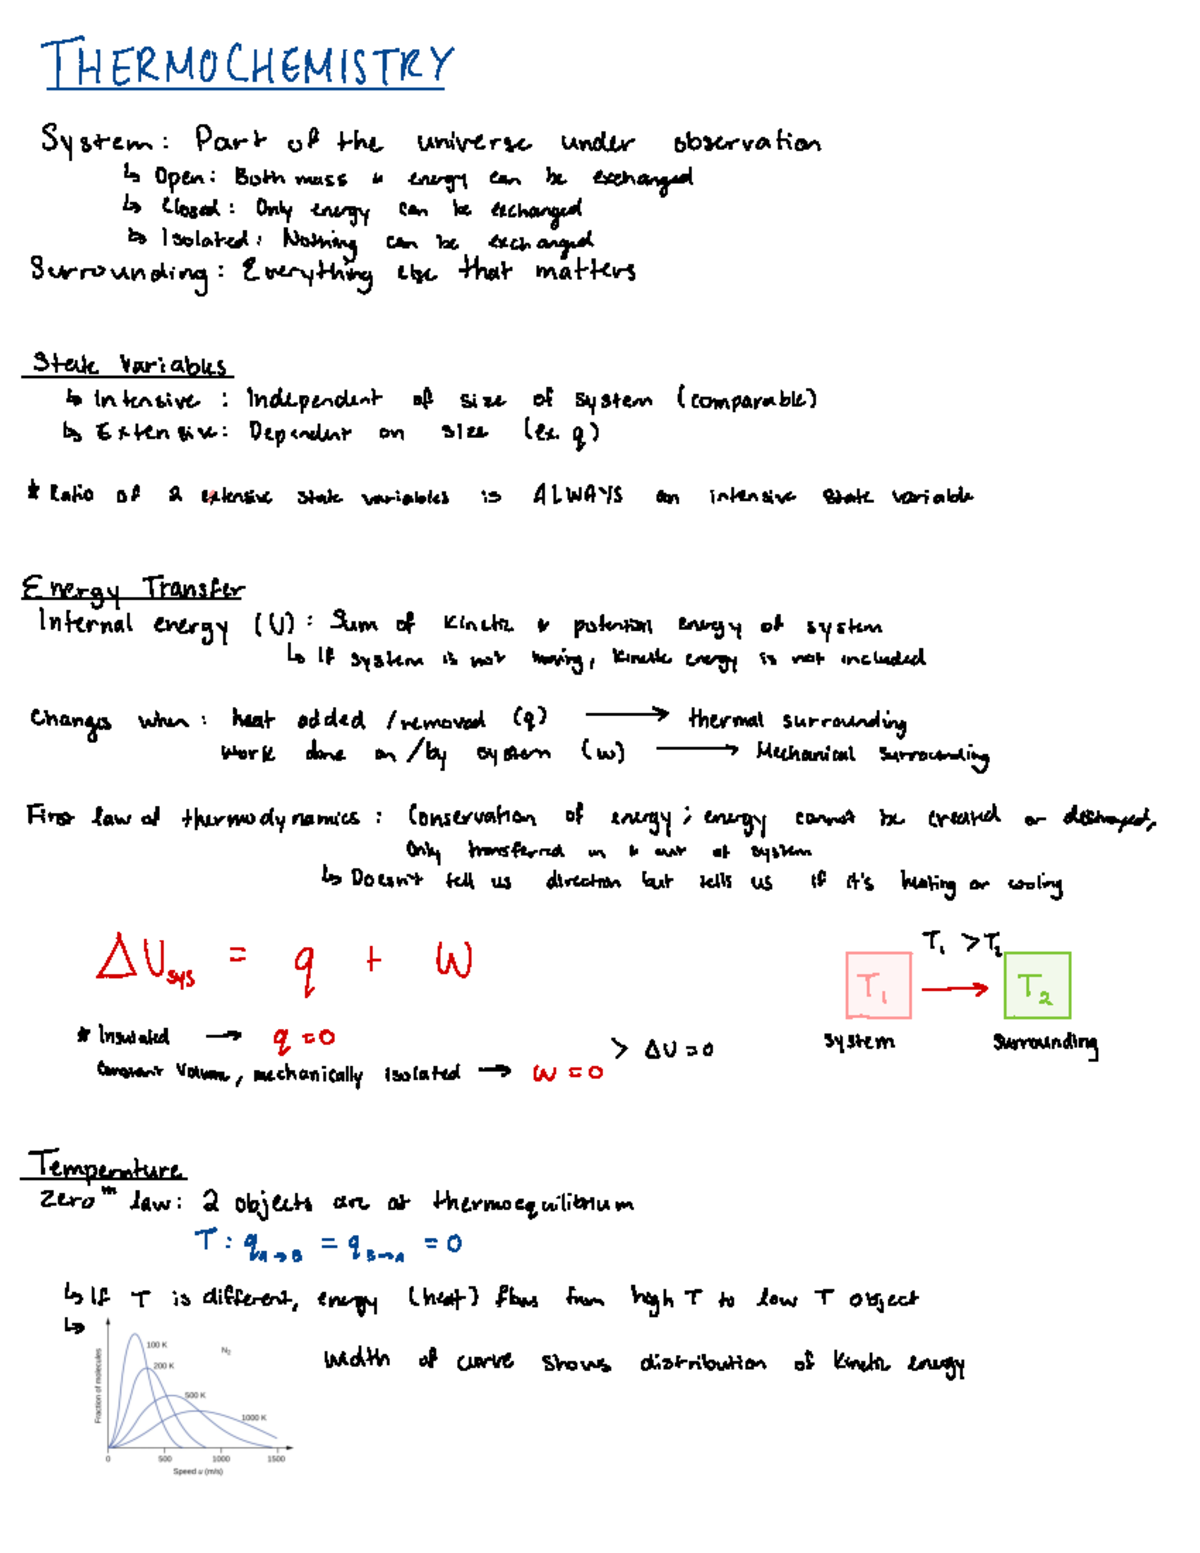 THERMOCHEMISTRY
System: Part of the universe under observation
↳ Open: Both mass & energy can be exchanged
↳ Closed: Only energy can be exchanged
↳ Isolated: Nothing can be exchanged
Surrounding: Everything else that matters
State Variables
↳ Intensive: Independent of size of system (comparable)
↳ Extensive: Dependent on size (ex. q)
* Ratio of 2 extensive state variables is ALWAYS an intensive state variable
Energy Transfer
Internal energy (U): Sum of kinetic & potential energy of system
↳ If system is not moving, kinetic energy is not included
Changes when: heat added / removed (q) → thermal surrounding
work done on / by system (w) → Mechanical surrounding
First law of thermodynamics: Conservation of energy; energy cannot be created or destroyed,
only transferred in & out of system
↳ Doesn't tell us direction but tells us if it's heating or cooling
T₁ > T₂
ΔU_sys = q + W
T₁ → T₂
system surrounding
* Insulated → q = 0
> ΔU = 0
Constant Volume, mechanically isolated → W = 0
Temperature
Zeroᵗʰ law: 2 objects are at thermoequilibrium
T: q_A→B = q_B→A = 0
↳ If T is different, energy (heat) flows from high T to low T object
↳
100 K
N₂
200 K
500 K
1000 K
Fraction of molecules
0 500 1000 1500
Speed u (m/s)
Width of curve shows distribution of kinetic energy